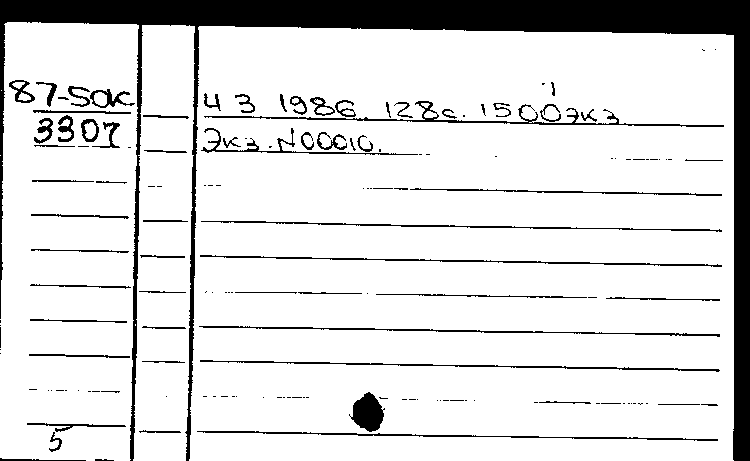 87-50К
3307
Ч 3 1986. 128с. 1500экз
Экз. N00010.
5